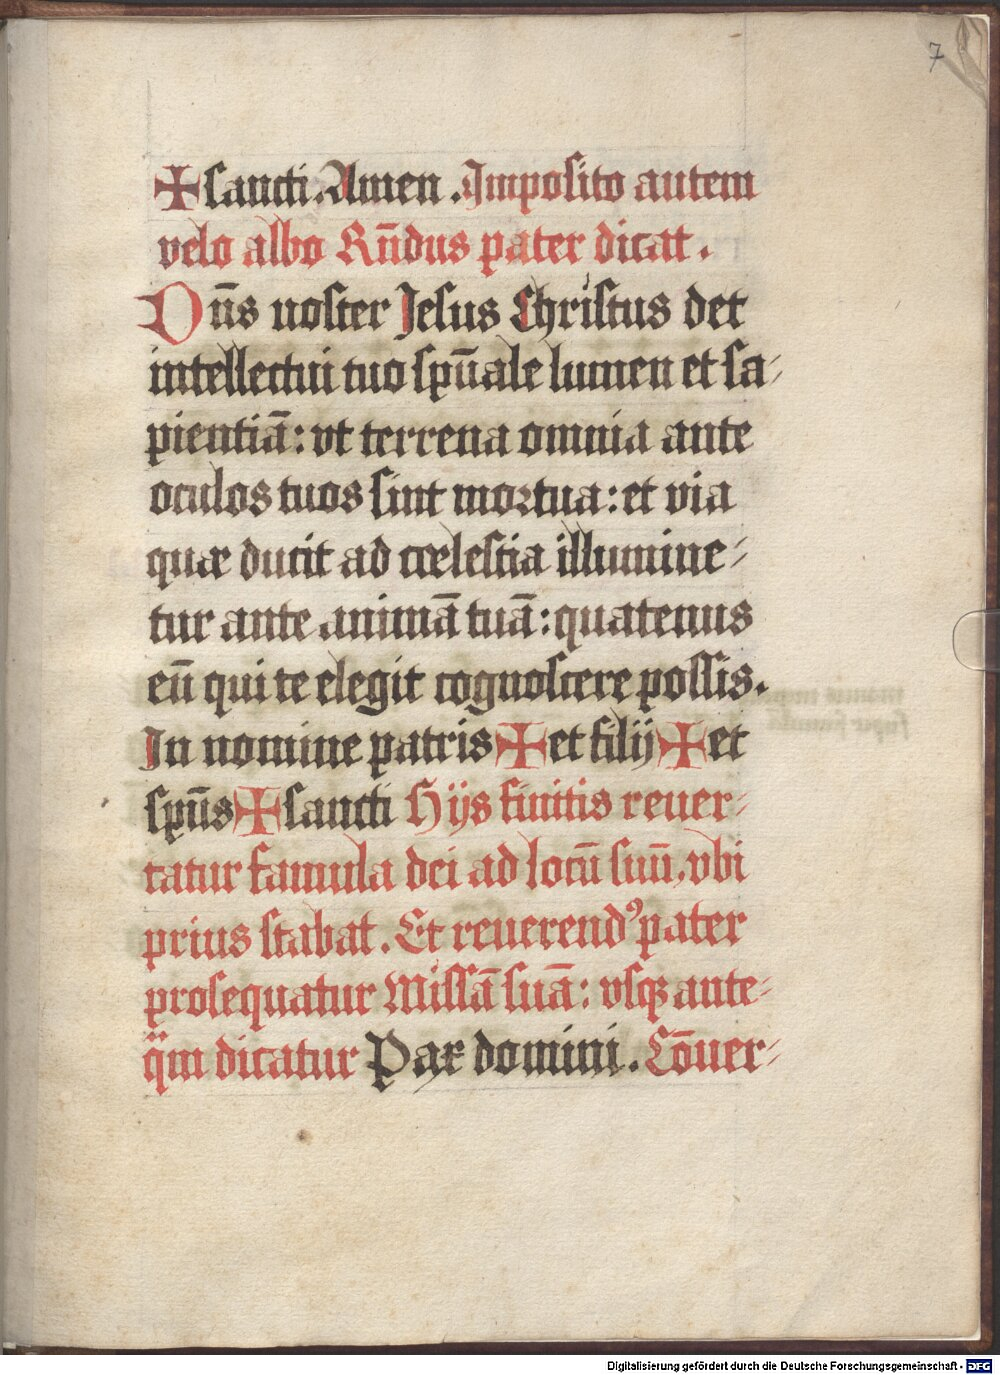 7
✠ sancti. Amen. Imposito autem
velo albo Rn̄dus pater dicat.
Dn̄s noster Jesus Christus det
intellectui tuo spū̄ale lumen et sa⸗
pientiā: vt terrena omnia ante
oculos tuos sint mortua: et via
quæ ducit ad cœlestia illumine⸗
tur ante animā tuā: quatenus
eū qui te elegit cognoscere possis.
In nomine patris ✠ et filij ✠ et
spūs ✠ sancti Hijs finitis reuer⸗
tatur famula dei ad locū suū, vbi
prius stabat. Et reuerendꝰ pater
prosequatur Missā suā: vsqꝫ ante⸗
q̄m dicatur Pax domini. Cōuer⸗
Digitalisierung gefördert durch die Deutsche Forschungsgemeinschaft - DFG